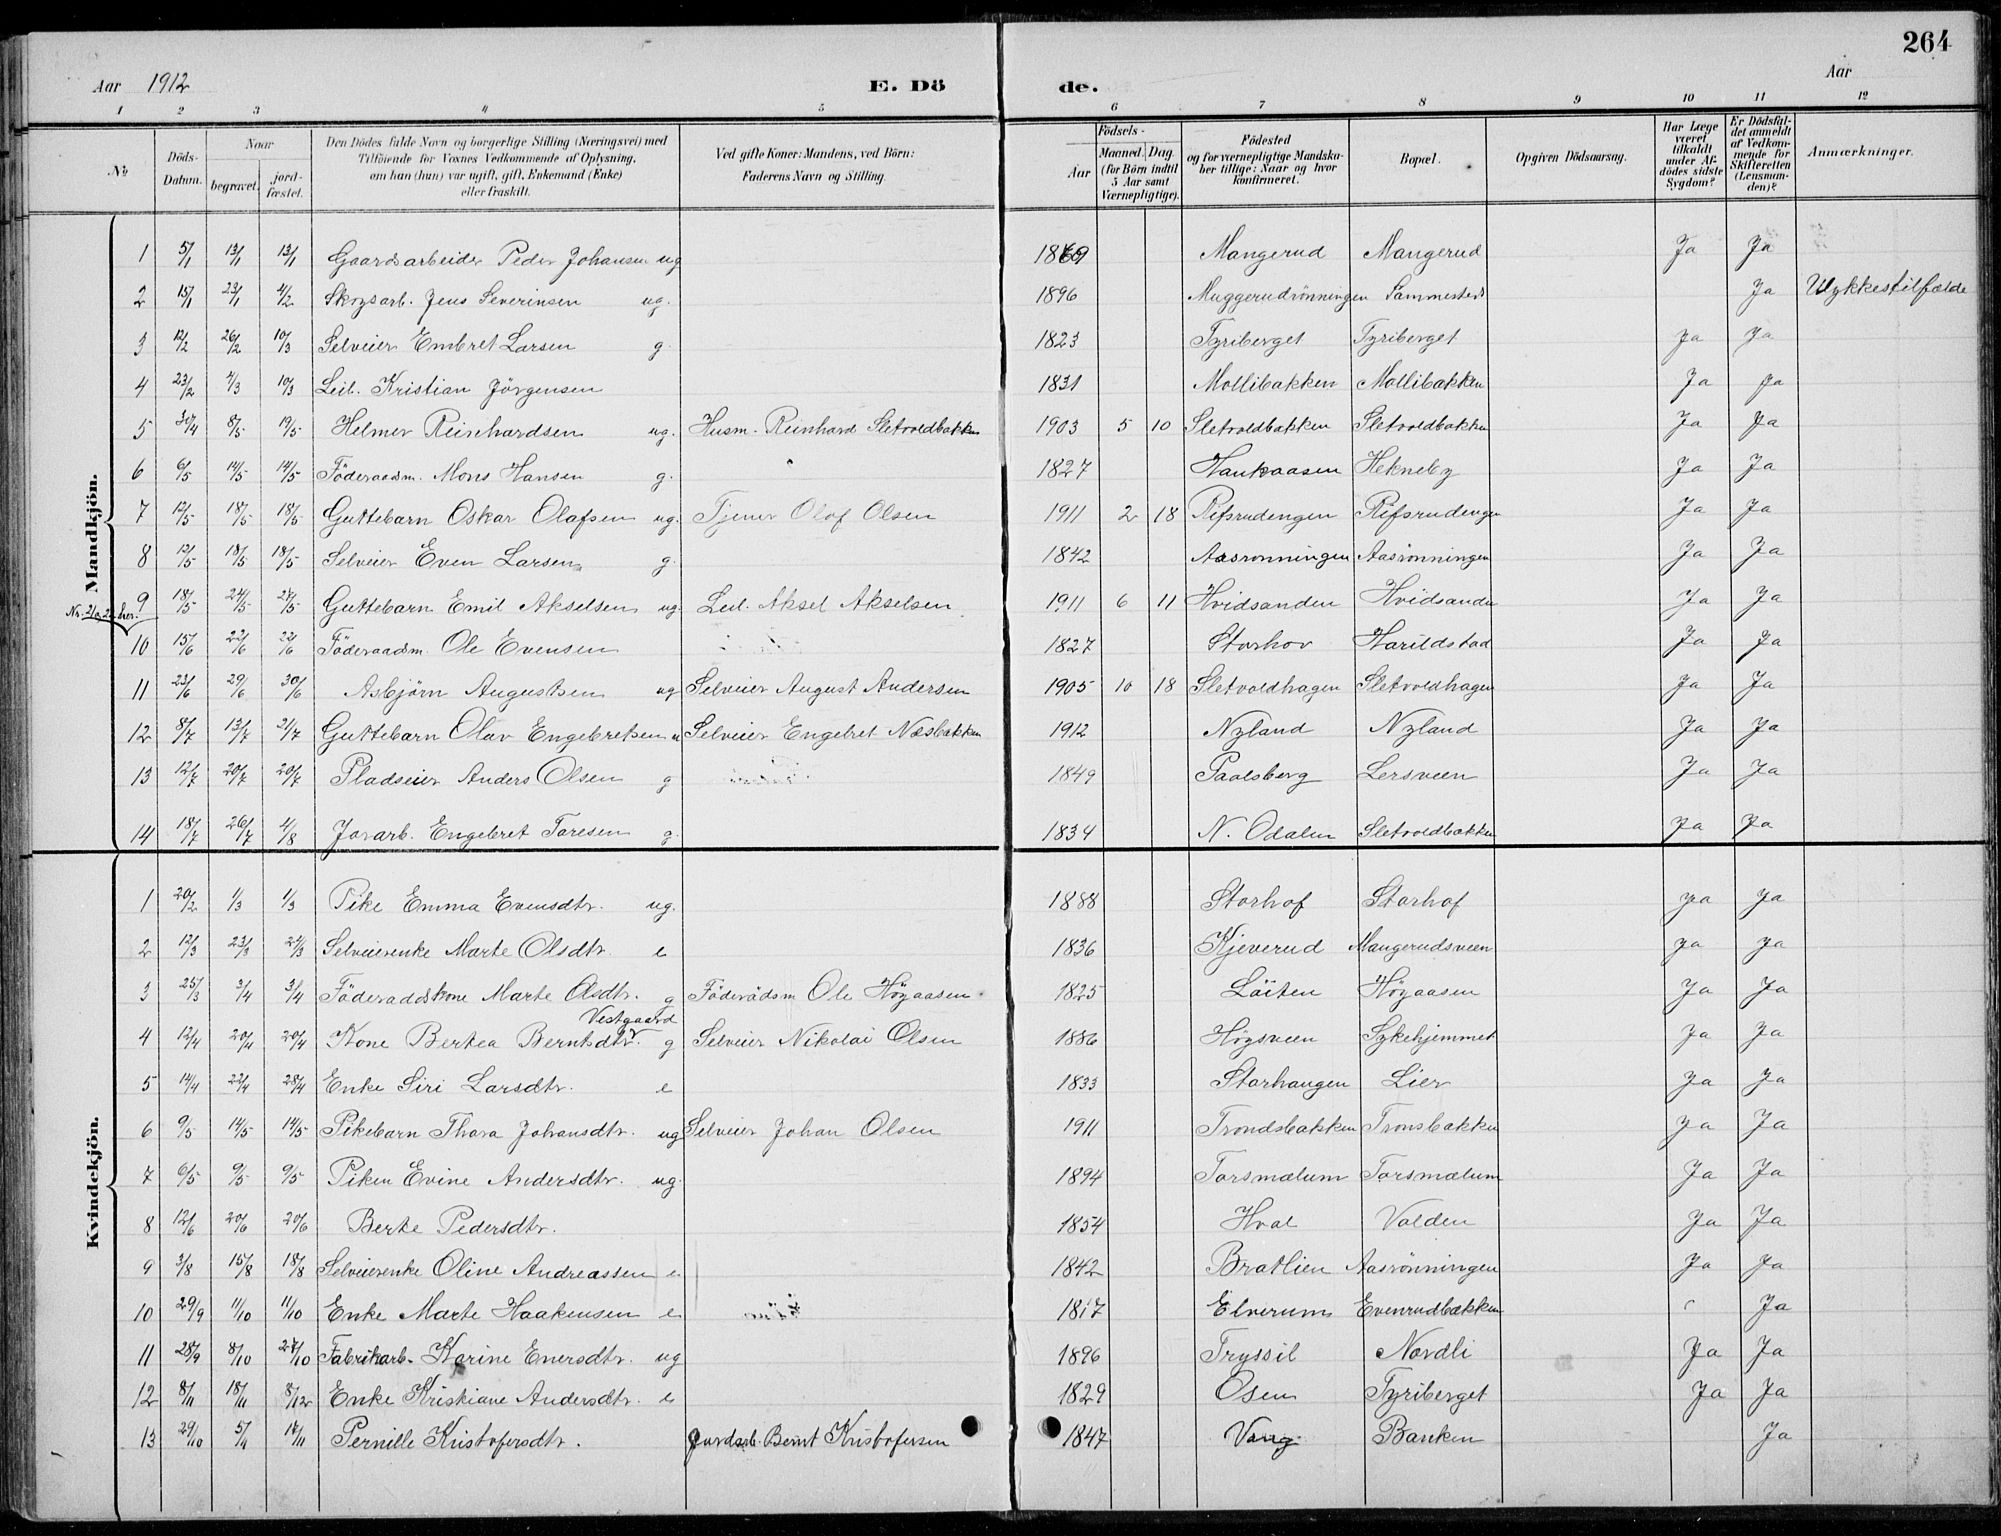 264
Aar 1912 E. Dö de. Aar
1 2 3 4 5 6 7 8 9 10 11 12
No. Döds-Datum. Naar begravet. jordfæstet. Den Dödes fulde Navn og borgerlige Stilling (Næringsvei) med Tilföiende for Voxnes Vedkommende af Oplysning, om han (hun) var ugift, gift, Enkemand (Enke) eller fraskilt. Ved gifte Koner: Mandens, ved Börn: Faderens Navn og Stilling. Födsels- Aar Maaned. Dag. (for Börn indtil 5 Aar samt Værnepligtige). Födested og for værnepligtige Mandskaber tillige: Naar og hvor konfirmeret. Bopæl. Opgiven Dödsaarsag. Har Læge været tilkaldt under Afdödes sidste Sygdom? Er Dödsfaldet anmeldt af Vedkommende for Skifteretten (Lensmanden)? Anmærkninger.
Mandkjön.
1 5/1 13/1 13/1 Gaardsarbeider Peder Johansen ug Mangerud Mangerud Ja Ja
2 15/1 23/1 4/2 Skogsarb. Jens Severinsen ug. 1896 Muggerudrönningen Sammesteds Ja Ulykkestilfælde
3 12/2 26/2 10/3 Selveier Embret Larsen g. 1823 Tyriberget Tyriberget Ja Ja
4 23/2 4/3 10/3 Leil. Kristian Jörgensen 1831 Mollibakken Mollibakken Ja Ja
5 30/4 8/5 19/5 Helmer Reinhardsen ug. Husm. Reinhard Sletvoldbakken 1903 5 10 Sletvoldbakken Sletvoldbakken Ja Ja
6 6/5 14/5 14/5 Föderaadsm. Mons Hansen g. 1827 Haukaasen Hekneby Ja Ja
7 12/5 18/5 18/5 Guttebarn Oskar Olafsen ug. Tjener Olof Olsen 1911 2 18 Rifsrudengen Rifsrudengen Ja Ja
8 12/5 18/5 18/5 Selveier Even Larsen g. 1842 Aasrönningen Aasrönningen Ja Ja
9 18/5 24/5 24/5 Guttebarn Emil Akselsen ug. Leil. Aksel Akselsen 1911 6 11 Hvidsanden Hvidsanden Ja Ja
10 15/6 22/6 22/6 Föderaadsm. Ole Evensen 1827 Storhov Harildstad Ja Ja
11 23/6 29/6 30/6 Asbjörn Augustsen ug Selveier August Andersen 1905 10 18 Sletvoldhagen Sletvoldhagen Ja Ja
12 8/7 13/7 21/7 Guttebarn Olav Engebretsen u Selveier Engebret Næsbakken 1912 Nyland Nyland Ja Ja
13 12/7 20/7 20/7 Pladseier Anders Olsen g 1849 Paalsberg Lersveen Ja Ja
14 18/7 26/7 4/8 Jorarb. Engebret Toresen g. 1834 N. Odalen Sletvoldbakken Ja Ja
Kvindekjön.
1 20/2 1/3 1/3 Pike Emma Evensdtr. ug. 1888 Storhof Storhof Ja Ja
2 12/3 23/3 24/3 Selveierenke Marte Olsdtr. e 1836 Kjeverud Mangerudsveen Ja Ja
3 25/3 3/4 3/4 Föderaadskone Marte Olsdtr. g Föderådsm Ole Högaasen 1825 Löiten Högaasen Ja Ja
Vestgaard
4 12/4 20/4 20/4 Kone Bertea Berntsdtr. g Selveier Nikolai Olsen 1886 Högsveen Sykehjemmet Ja Ja
5 14/4 22/4 28/4 Enke Siri Larsdtr. e 1833 Storhaugen Lier Ja Ja
6 9/5 14/5 14/5 Pikebarn Thora Johansdtr. ug Selveier Johan Olsen 1911 Trondsbakken Tronsbakken Ja Ja
7 6/5 9/5 9/5 Piken Evine Andersdtr. ug. 1894 Torsmælum Torsmælum Ja Ja
8 12/6 20/6 20/6 Berte Pedersdtr. 1854 Hval Volden Ja Ja
9 3/8 15/8 18/8 Selveierenke Oline Andreassen e. 1842 Bratlien Aasrönningen Ja Ja
10 29/9 11/10 11/10 Enke Marte Haakensen e 1817 Elverum Evenrudbakken Ja
11 28/9 8/10 27/10 Fabrikarb. Karine Enersdtr. ug 1896 Tryssil Nordli Ja Ja
12 8/11 18/11 8/12 Enke Kristiane Andersdtr. e 1829 Osen Tyriberget Ja Ja
13 29/10 Pernille Kristofersdtr. Jordarb. Bernt Kristofersen 1847 Vang Banken Ja